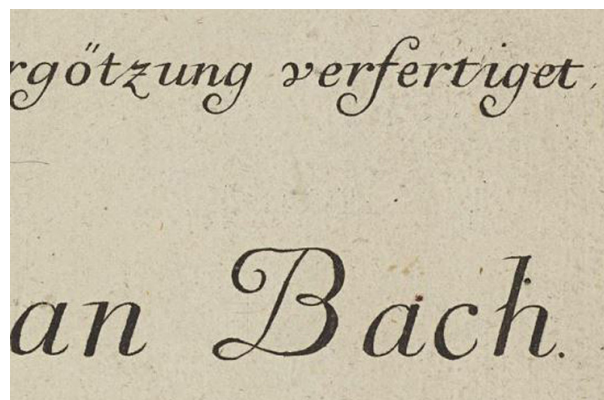 rgötzung verfertiget
an Bach.